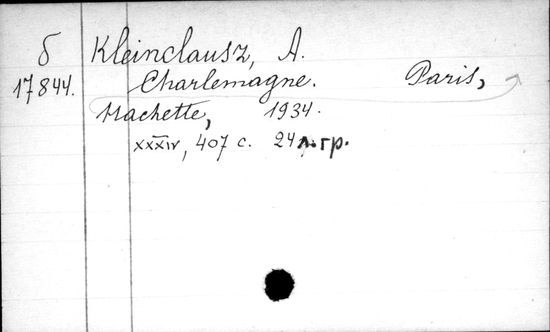 б Kleinclausz, A.
17844. Charlemagne. Paris,
Hachette, 1934.
XXXIV, 407 с. 24 л. гр.